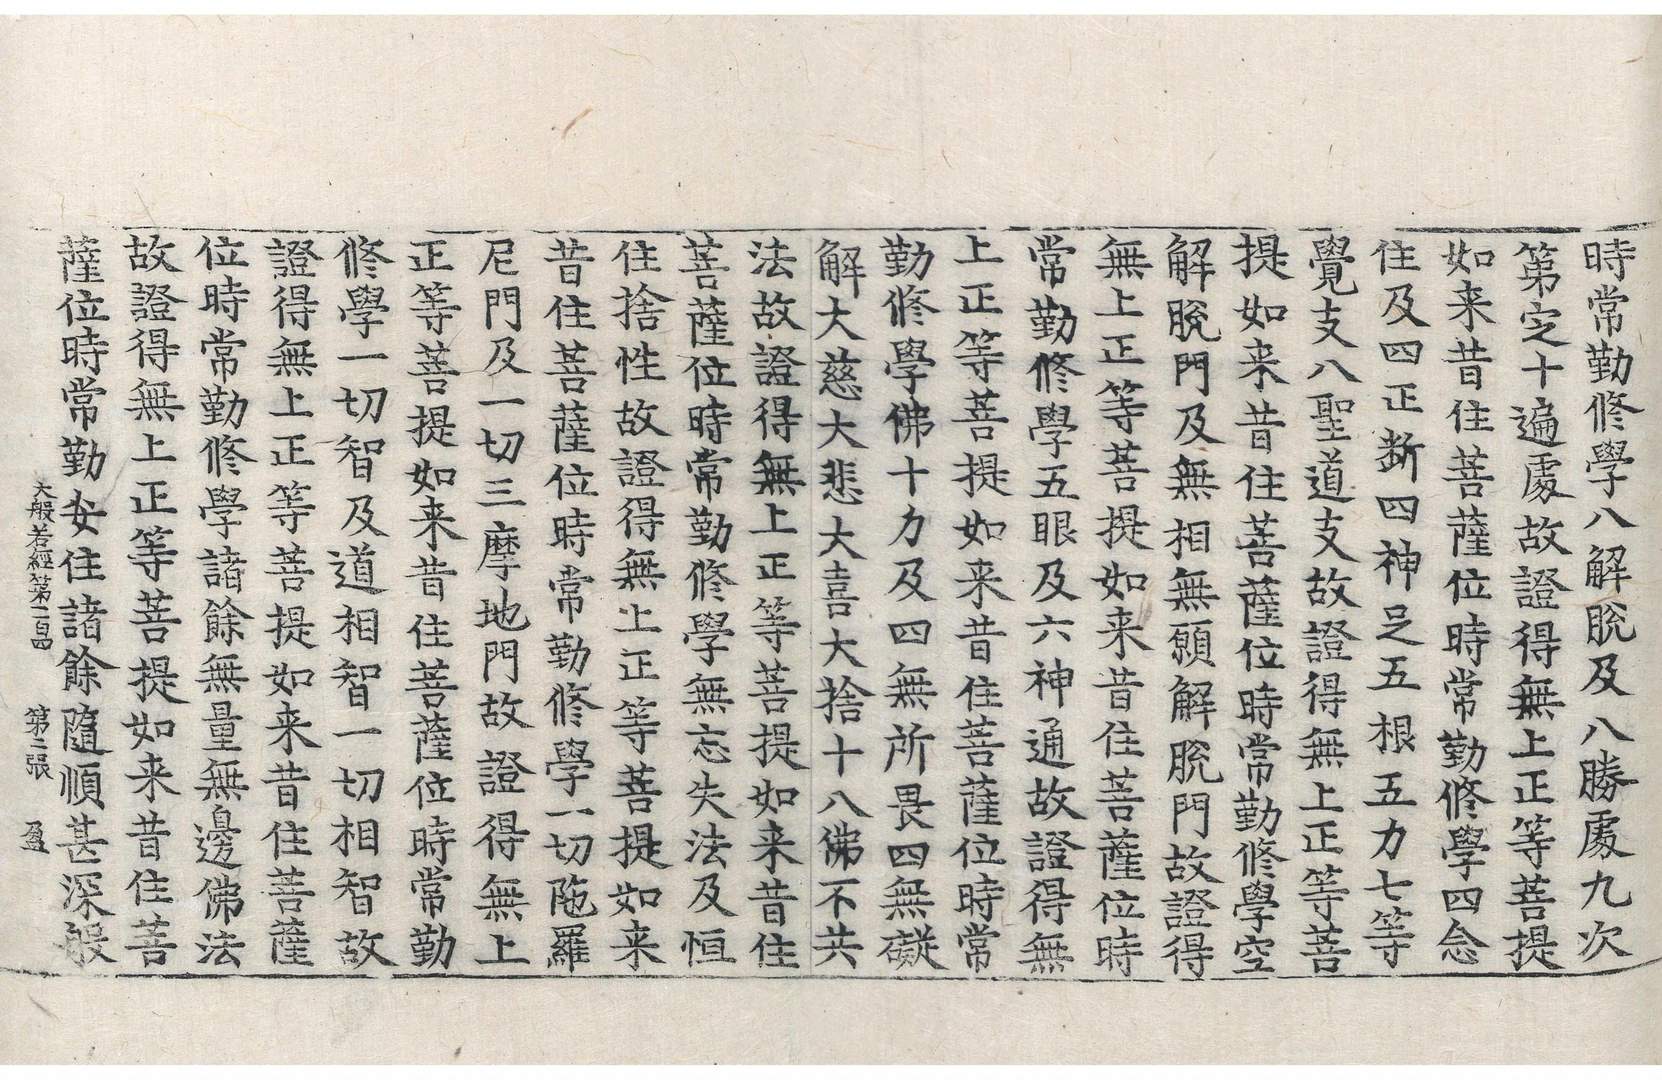 時常勤修學八解脫及八勝處九次
第定十遍處故證得無上正等菩提
如来昔住菩薩位時常勤修學四念
住及四正断四神足五根五力七等
覺支八聖道支故證得無上正等菩
提如来昔住菩薩位時常勤修學空
解脫門及無相無願解脫門故證得
無上正等菩提如来昔住菩薩位時
常勤修學五眼及六神通故證得無
上正等菩提如来昔住菩薩位時常
勤修學佛十力及四無所畏四無礙
解大慈大悲大喜大捨十八佛不共
法故證得無上正等菩提如来昔住
菩薩位時常勤修學無忘失法及恒
住捨性故證得無上正等菩提如来
昔住菩薩位時常勤修學一切陁羅
尼門及一切三摩地門故證得無上
正等菩提如来昔住菩薩位時常勤
修學一切智及道相智一切相智故
證得無上正等菩提如来昔住菩薩
位時常勤修學諸餘無量無邊佛法
故證得無上正等菩提如来昔住菩
薩位時常勤安住諸餘隨順甚深般
大般若經第 第二張 盈